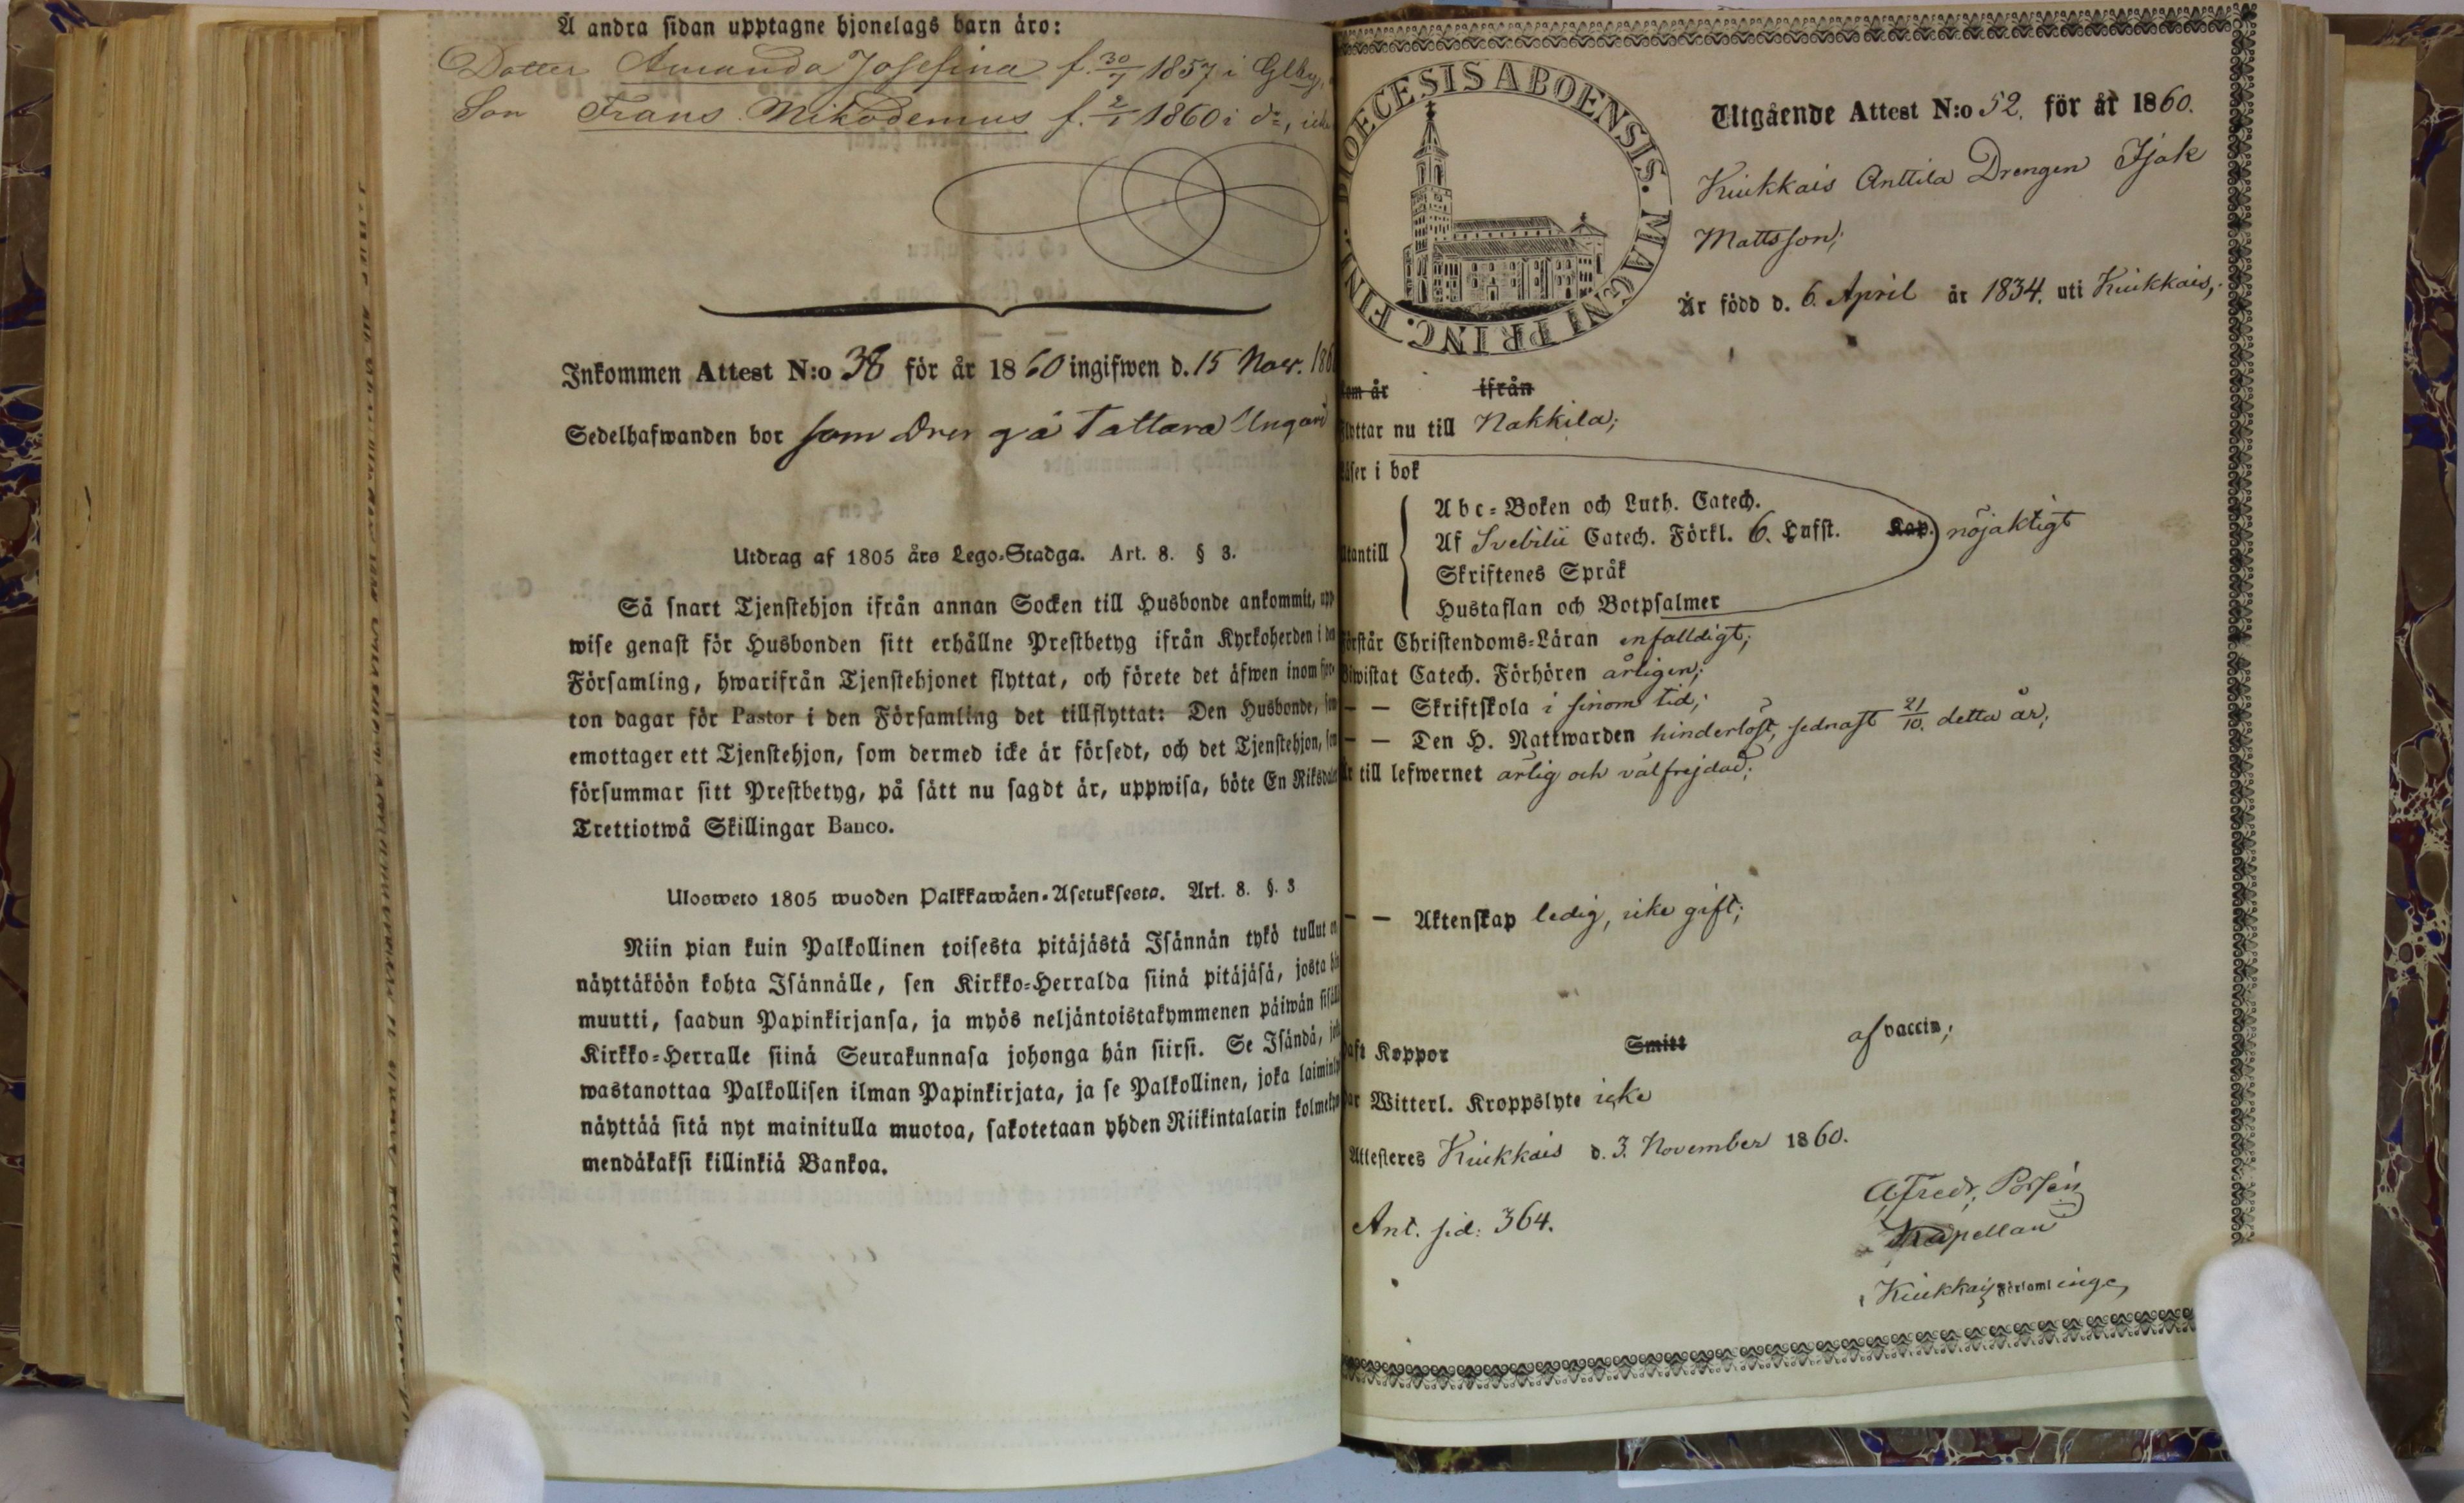 Å andra sidan upptagne hjonelags barn äro:
Dotter Amanda Josefina f. 30/7 1857 i
Son Frans Nikodemus f. 2/1 1860 i do,
Inkommen Attest N:o 38 för år 1860 ingifwen d. 15 Now. 186
Sedelhafwanden bor som Dreng å Tattara Ungari
Utdrag af 1805 års Lego-Stadga. Art. 8. § 3.
Så snart Tjenstehjon ifrån annan Socken till Husbonde ankommit, upp
wise genast för Husbonden sitt erhållne Prestbetyg ifrån Kyrkoherden i den
Församling, hwarifrån Tjenstehjonet flyttat, och förete det äfwen inom fjor-
ton dagar för Pastor i den Församling det tillflyttat: Den Husbonde, som
emottager ett Tjenstehjon, som dermed icke är försedt, och det Tjenstehjon, som
försummar sitt Prestbetyg, på sätt nu sagdt är, uppwisa, böte En Riksdaler
Trettiotwå Skillingar Banco.
Ulosweto 1805 wuoden Palkkawäen-Asetuksesta. Art. 8. §. 3
Niin pian kuin Palkollinen toisesta pitäjästä Isännän tykö tullut on
näyttäköön kohta Isännälle, sen Kirkko-Herralda siinä pitäjäsä, josta hän
muutti, saadun Papinkirjansa, ja myös neljäntoistakymmenen päiwän sisällä
Kirkko-Herralle siinä Seurakunnasa johonga hän siirsi. Se Isändä, joka
wastanottaa Palkollisen ilman Papinkirjata, ja se Palkollinen, joka laiminlyö
näyttää sitä nyt mainitulla muotoa, sakotetaan yhden Riikintalarin kolmekym
mendäkaksi killinkiä Bankoa.
DIOECESIS ABOENSIS. MAGNI PRINC. FINL.
Utgående Attest N:o 52. för år 1860.
Kiukkais Anttila Drengen Isak
Mattsson;
Är född d. 6. April år 1834. uti Kiukkais,
som är ifrån
flyttar nu till Nakkila;
Läser i bok
Abc-Boken och Luth. Catech.
Utantill Af Svebilii Catech. Förkl. 6. Hufst. Kap. nöjaktigt
Skriftenes Språk
Hustaflan och Botpsalmer
Förstår Christendoms-Läran enfalldigt;
Biwistat Catech. Förhören årligen;
— — Skriftskola i sinom tid;
— — Den H. Nattwarden hinderlöst, sednast 21/10. detta år;
Är till lefwernet ärlig och välfrejdad;
— — Äktenskap ledig, icke gift;
Haft Koppor Smitt af vaccin;
Har Witterl. Kroppslyte icke
Attesteres Kiukkais d. 3. November 1860.
Ant. sid: 364.
Kapellan
Kiukkais Församlinge